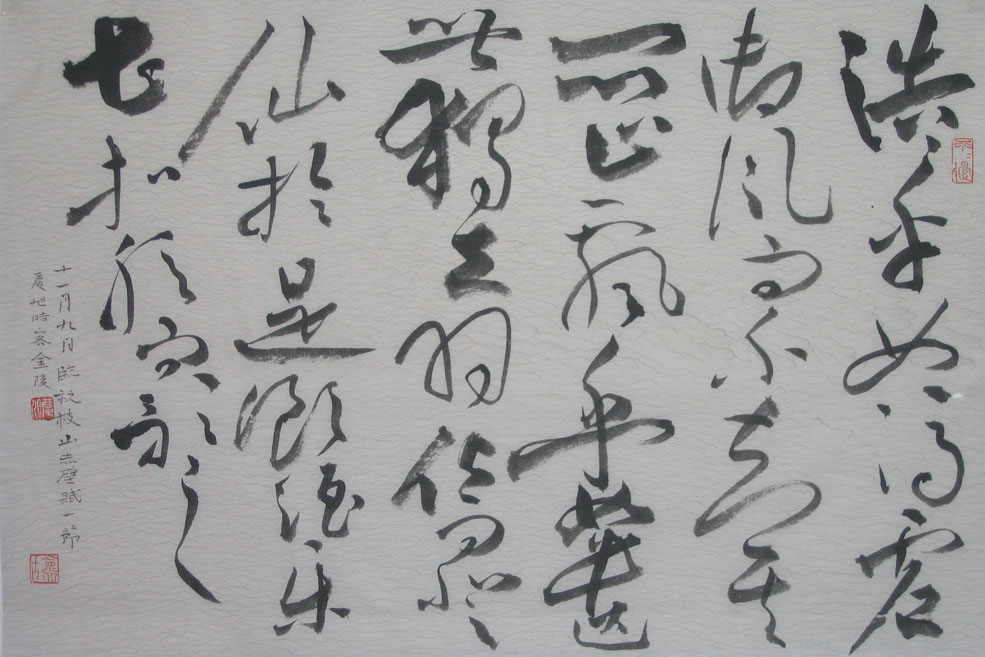 浩〻乎如馮虛
御風而不知其
所止飄乎如遺
世獨立羽化而登
仙於是飲酒樂
甚扣舷而歌之
十一月九日臨祝枝山赤壁賦一節
慶旭時客金陵